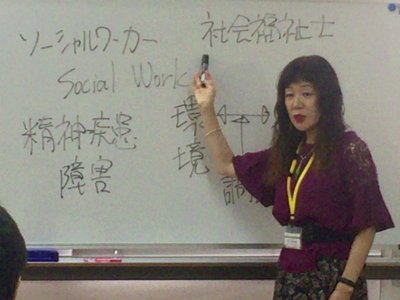 ソーシャルワーカー
社会福祉士
Social Work
精神疾患
障害
環境
調